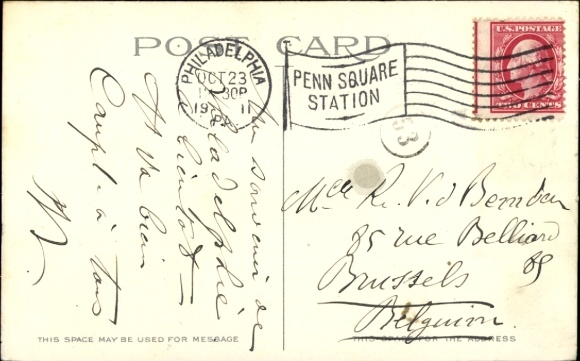 POST CARD
PHILADELPHIA
OCT 23
30P
19 11
PA
PENN SQUARE
STATION
U.S. POSTAGE
TWO CENTS
53
Un souvenir de
Philadelphie
à bientôt —
Tt va bien
à tous
M.
Mlle R. V. d
85 rue Belliard
85
Brussels
Belguim.
THIS SPACE MAY BE USED FOR MESSAGE
THIS SPACE IS FOR THE ADDRESS